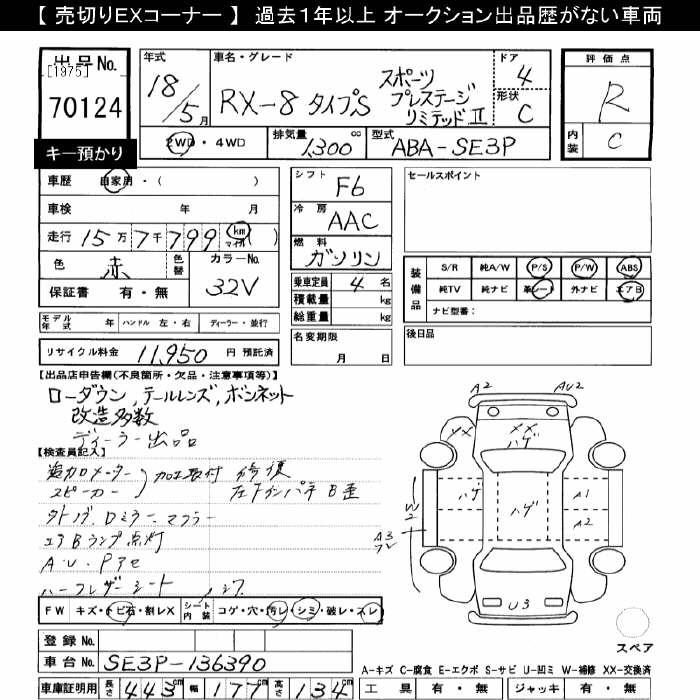 【 売切りEXコーナー 】 過去1年以上 オークション出品歴がない車両
出品No.
[1975]
70124
キー預かり
年式
18/5月
車名・グレード
RX-8 タイプS
スポーツ
プレステージ
リミテッドⅡ
ドア
4
形状
C
2WD・4WD
排気量
1,300 cc
型式
ABA-SE3P
評価点
R
内装
C
車歴 自家用・( )
車検 年 月
走行 15万7千799 km マイル ( )
色
赤
色替
カラーNo.
32V
保証書 有・無
シフト
F6
冷房
AAC
燃料
ガソリン
乗車定員 4 名
積載量 kg
総重量 kg
セールスポイント
装備品
S/R 純A/W P/S P/W ABS
純TV 純ナビ 革シート 外ナビ エアB
ナビ型番:
モデル年式 年 ハンドル 左・右 ディーラー・並行
名変期限
月 日
後日品
リサイクル料金 11,950 円 預託済
【出品店申告欄(不良箇所・欠品・注意事項等)】
ローダウン,テールレンズ,ボンネット
改造多数
ディーラー出品
【検査員記入】
追加メーター
スピーカー
加工取付 修復
B歪
Dミラー、マフラー
エアBランプ点灯
ハーフレザーシート
FW キズ・トビ石・割レX シート内装 コゲ・穴・汚レ・シミ・破レ・スレ
登録No.
車台No. SE3P-136390
車庫証明用 長さ 443cm 幅 177cm 高さ 134cm
A2 AU2
XX XX
ハゲ
ハゲ ハゲ A1
A2
W2
A3
U3
スペア
A-キズ C-腐食 E-エクボ S-サビ U-凹ミ W-補修 XX-交換済
工具 有・無 ジャッキ 有・無